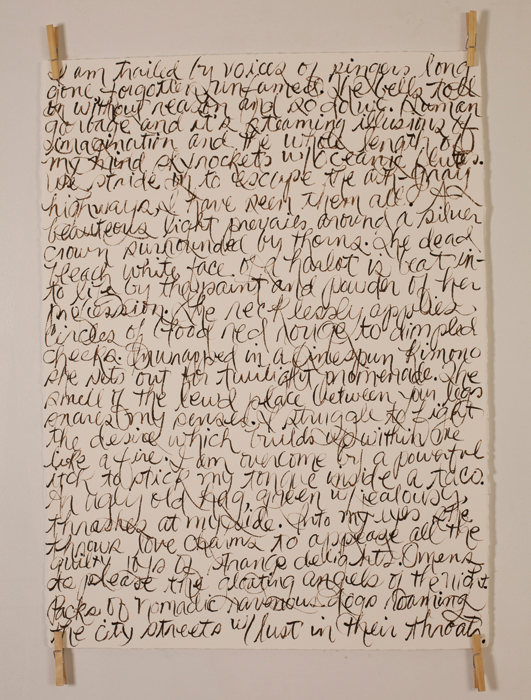 I am trailed by voices of singers long
gone forgotten unfamed. The bells toll
on without reason and so do I. Human
garbage and it's steaming illusions of
imagination and the whole length of
my mind skyrockets w/ oceanic
We stride on to escape the
highways. I have seen them all. A
beauteous light prevails around a silver
crown surrounded by thorns. The dead
bleach white face of a harlot is beat in-
to life by the paint and powder of her
procession. She recklessly applies
circles of blood red rouge to dimpled
cheeks. Unwrapped in a finespun kimono
she sets out for twilight promenade. The
smell of the lewd place between your legs
snares my senses. I struggle to fight
the desire which builds up within me
like a fire. I am overcome by a powerful
itch to stick my tongue inside a taco.
An ugly old hag, green w/ jealousy,
thrashes at my side. Into my eyes she
throws love charms to appease all the
guilty strange delights. Omens
to please the gloating angels of the night
Packs of nomadic ravenous dogs roaming
the city streets w/ lust in their throats.